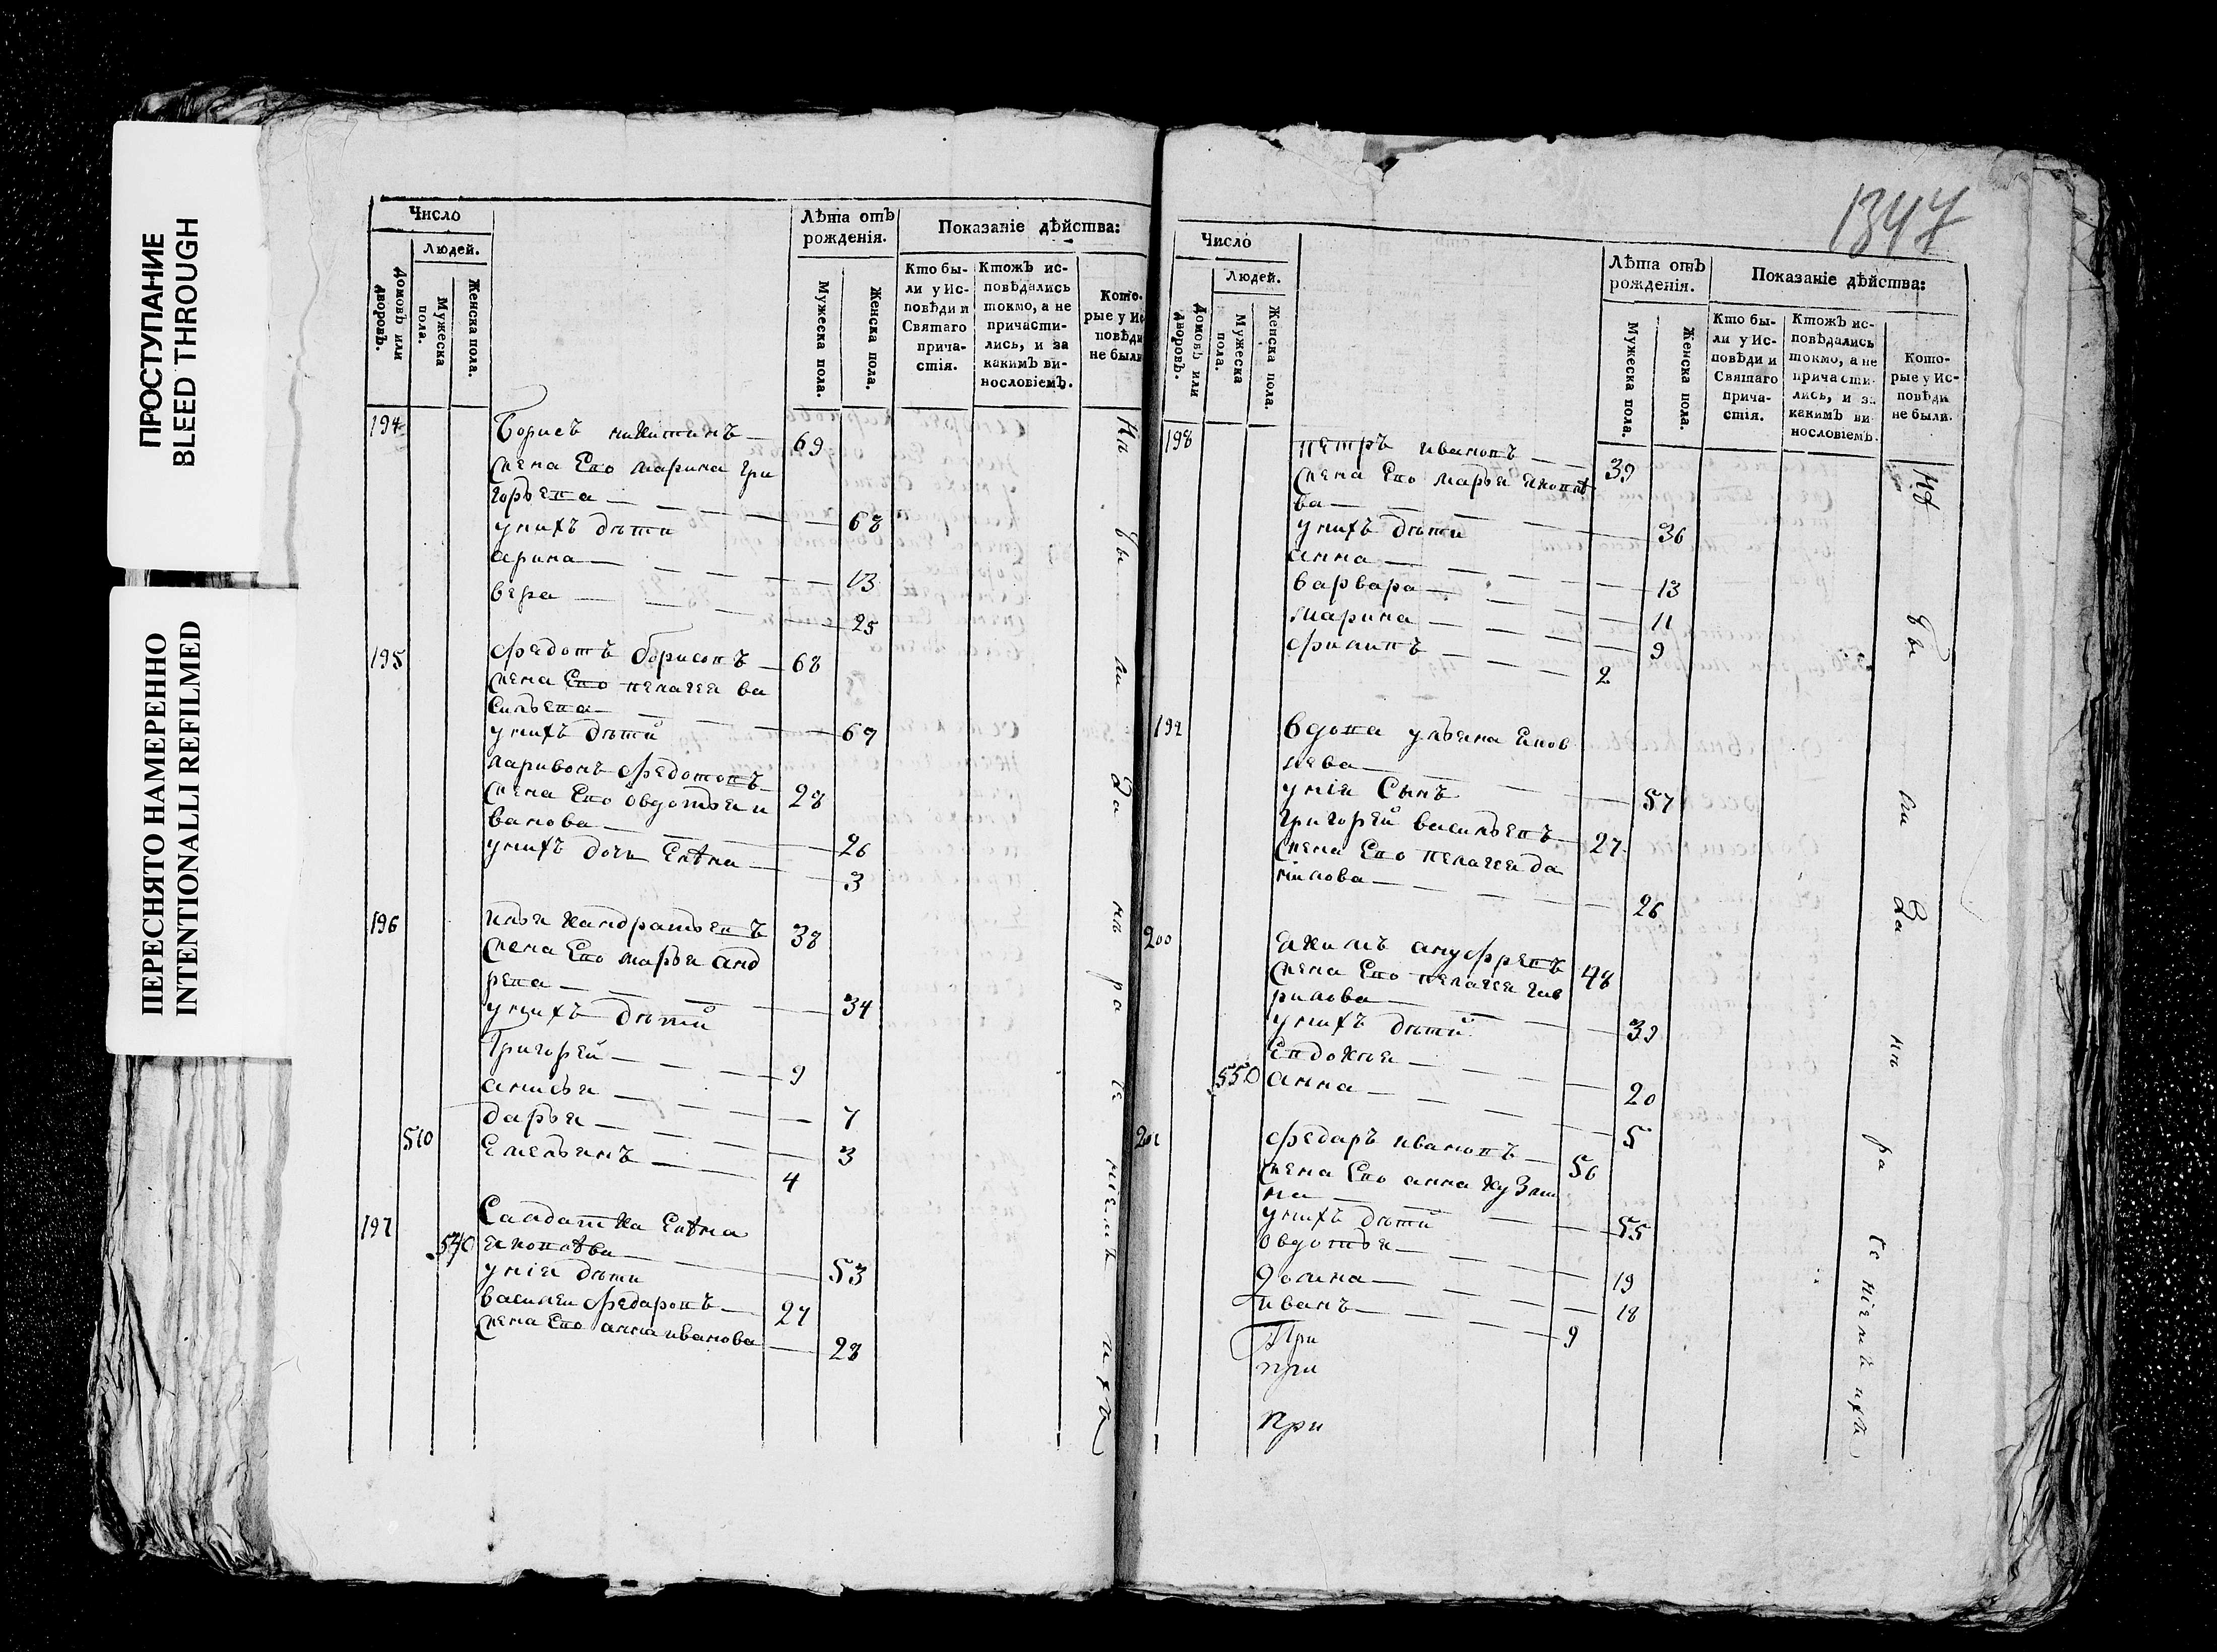 ПРОСТУПАНИЕ
BLEED THROUGH
ПЕРЕСНЯТО НАМЕРЕННО
INTENTIONALLI REFILMED
Число
Людей.
Домовъ или дворовъ.
Мужеска пола.
Женска пола.
Лѣта отъ рожденія.
Мужеска пола.
Женска пола.
Показаніе дѣйства:
Кто бы-
ли у Ис-
повѣди и
Святаго
прича-
стія.
Ктожъ ис-
повѣдались
токмо, а не
причасти-
лись, и за
какимъ ви-
нословіемъ.
Кото-
рые у Ис
повѣди
не были
194 Борисъ никитинъ 69
жена Ево марина гри
горьева 68
унихъ дѣти
арина 13
вера 25
195 федотъ борисовъ 68
жена Ево пелагея ва
сильева 67
унихъ дѣтй
ларивонъ федотовъ 28
жена Ево овдотья и
ванова 26
унихъ дочь Елѣна 3
196 илья кандратьевъ 38
жена Ево марья анд
рева 34
унихъ дѣтй
Григорей 9
анисья 7
дарья 3
510 Емельянъ 4
197 Салдатка Елѣна
540 яковлѣва 53
унія дѣти
василеи федаровъ 27
жена Ево анна иванова 28
1347
Число
Людей.
Домовъ или дворовъ.
Мужеска пола.
Женска пола.
Лѣта отъ
рожденія.
Мужеска пола.
Женска пола.
Показаніе дѣйства:
Кто бы-
ли у Ис-
повѣди и
Святаго
прича-
стія.
Ктожъ ис-
повѣдались
токмо, а не
причасти-
лись, и за
какимъ ви-
нословіемъ.
Кото-
рые у Ис-
повѣди
не были.
198 петръ ивановъ 39
жена Ево марья яковлѣ
ва 36
унихъ дѣти
анна 13
варвара 11
марина 9
филипъ 2
199 вдова ульяна яков
лева 57
унія Сынъ
Григорей васильевъ 27
жена Ево пелагея да
нилова 26
200 якимъ ануфревъ 48
жена Ево пелагея гав
рилова 39
унихъ дѣтй
Евдокья 20
550 анна 5
201 федаръ ивановъ 56
жена Ево анна кузми
на 55
унихъ дѣтй
овдотья 19
иванъ 9
При
при
при